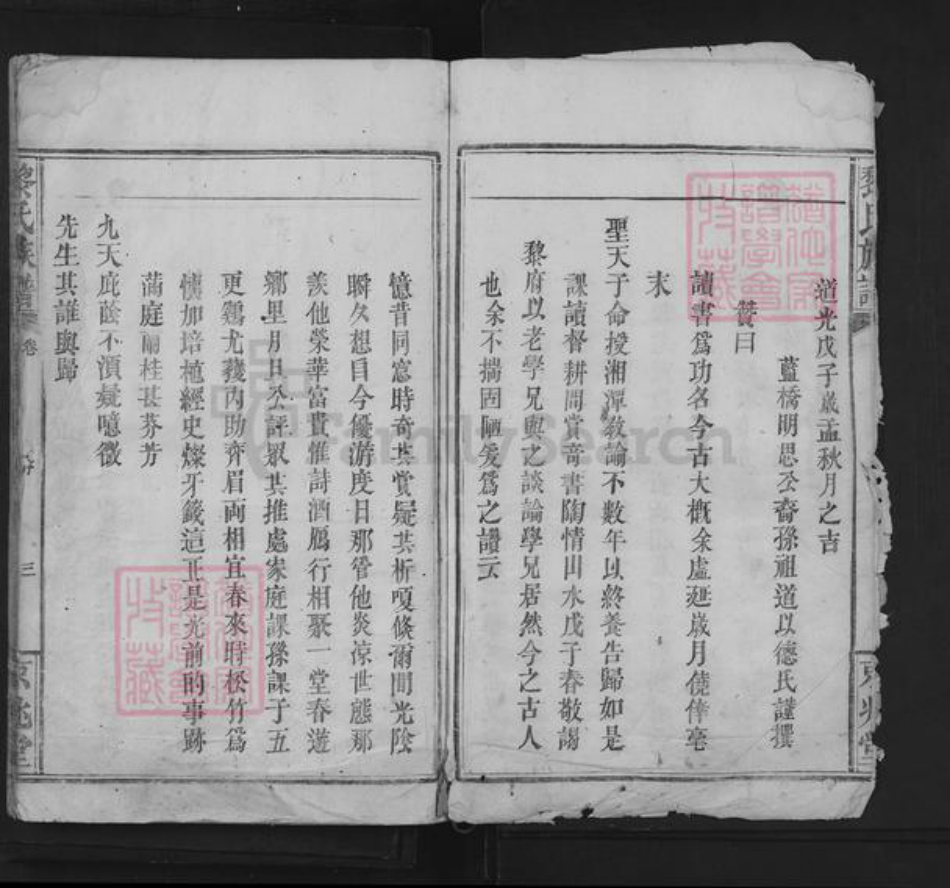 道光戊子歲孟秋月之吉
藍橋明思公裔孫祖道以德氏謹撰
贊曰
讀書爲功名今古大槪余虛延歲月僥倖亳
末
聖天子命授湘潭教諭不數年以終養告歸如是
課讀督耕間賞奇書陶情山水戊子春敬謁
黎府以老學兄與之談論學兄居然今之古人
也余不揣固陋爰爲之讚云
憶昔同窓時奇共賞疑共析嗄倐爾間光陰
瞬久想目今優游度日那管他炎凉世態那
羨他榮華富貴惟詩酒鴈行相聚一堂春遊
鄉里月旦公評眾共推處家庭課孫課子五
更鷄尤羨内助齊眉両相宜春來時松竹爲
懐加培植經史燦牙籤這正是光前的事跡
滿庭蘭桂甚芬芳
九天庇蔭不湏疑噫微
先生其誰與歸
黎氏族譜
卷
三
京兆堂
FamilySearch